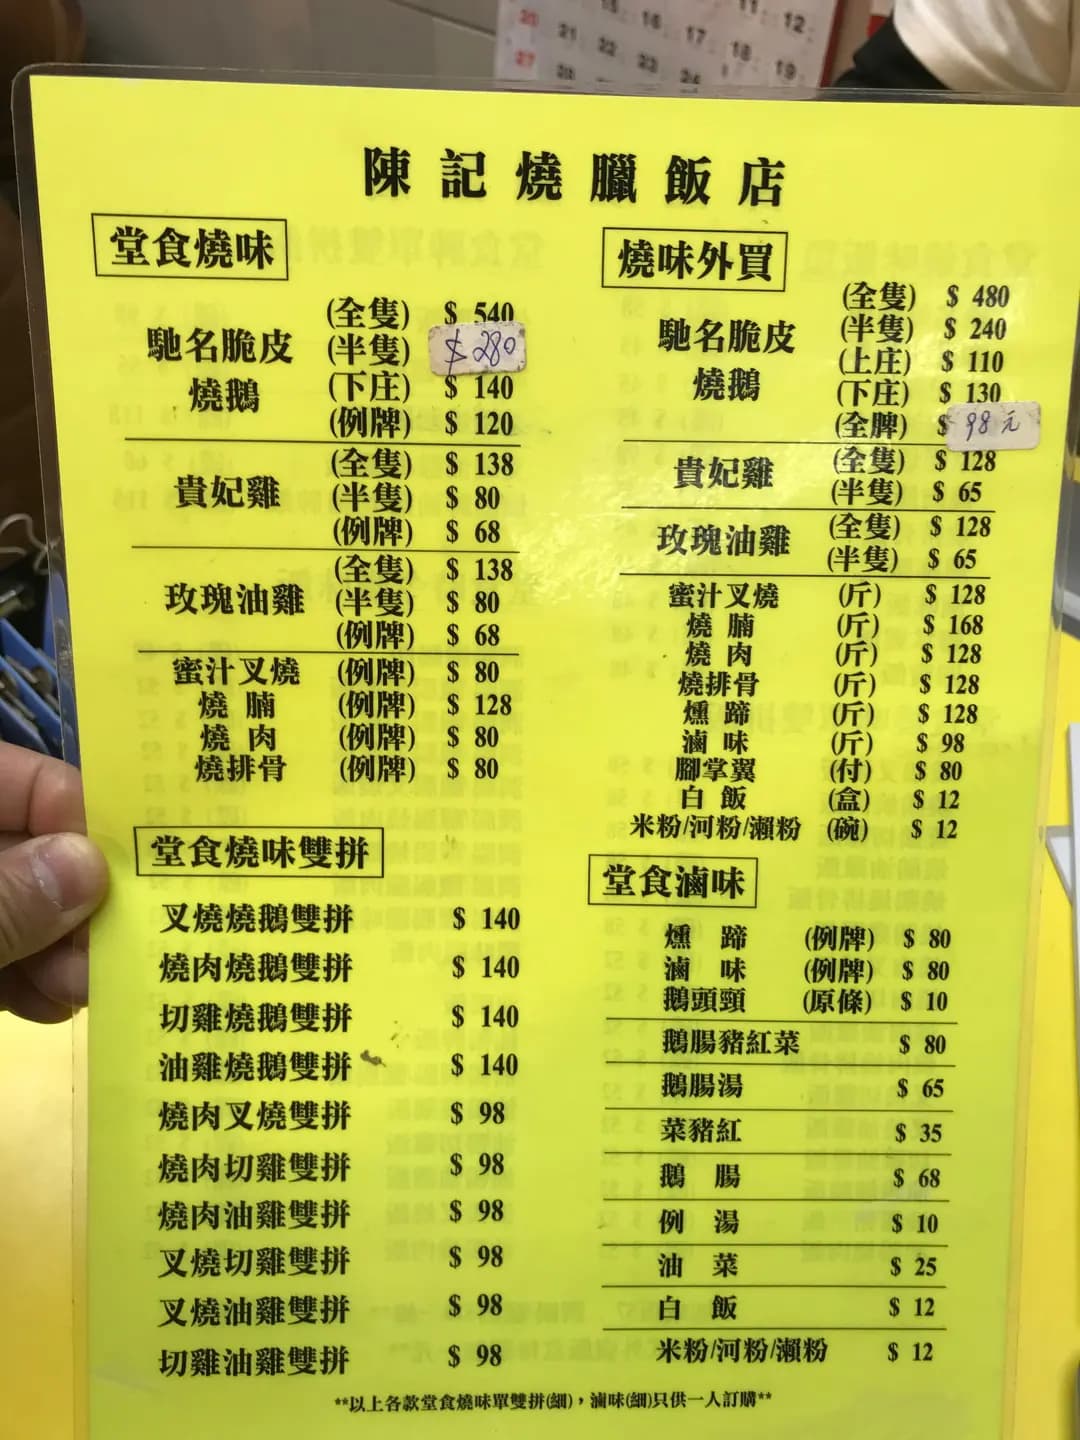 11 12
15 16 17 18 19
20 21 22 23 24
27 28
陳記燒臘飯店
堂食燒味
馳名脆皮燒鵝
(全隻) $ 540
(半隻) $ 280
(下庄) $ 140
(例牌) $ 120
貴妃雞
(全隻) $ 138
(半隻) $ 80
(例牌) $ 68
玫瑰油雞
(全隻) $ 138
(半隻) $ 80
(例牌) $ 68
蜜汁叉燒 (例牌) $ 80
燒腩 (例牌) $ 128
燒肉 (例牌) $ 80
燒排骨 (例牌) $ 80
堂食燒味雙拼
叉燒燒鵝雙拼 $ 140
燒肉燒鵝雙拼 $ 140
切雞燒鵝雙拼 $ 140
油雞燒鵝雙拼 $ 140
燒肉叉燒雙拼 $ 98
燒肉切雞雙拼 $ 98
燒肉油雞雙拼 $ 98
叉燒切雞雙拼 $ 98
叉燒油雞雙拼 $ 98
切雞油雞雙拼 $ 98
燒味外買
馳名脆皮燒鵝
(全隻) $ 480
(半隻) $ 240
(上庄) $ 110
(下庄) $ 130
(全脾) $ 98元
貴妃雞
(全隻) $ 128
(半隻) $ 65
玫瑰油雞
(全隻) $ 128
(半隻) $ 65
蜜汁叉燒 (斤) $ 128
燒腩 (斤) $ 168
燒肉 (斤) $ 128
燒排骨 (斤) $ 128
燻蹄 (斤) $ 128
滷味 (斤) $ 98
腳掌翼 (付) $ 80
白飯 (盒) $ 12
米粉/河粉/瀨粉 (碗) $ 12
堂食滷味
燻蹄 (例牌) $ 80
滷味 (例牌) $ 80
鵝頭頸 (原條) $ 10
鵝腸豬紅菜 $ 80
鵝腸湯 $ 65
菜豬紅 $ 35
鵝腸 $ 68
例湯 $ 10
油菜 $ 25
白飯 $ 12
米粉/河粉/瀨粉 $ 12
**以上各款堂食燒味單雙拼(細)，滷味(細)只供一人訂購**